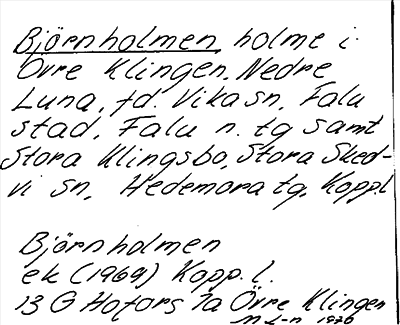 Björnholmen, holme i
Övre Klingen, Nedre
Luna, fd. Vika sn, Falu
stad, Falu n. tg samt
Stora Klingsbo, Stora Sked-
vi sn, Hedemora tg, Kopp.l
Björnholmen
ek (1969) Kopp. l.
13 G Hofors 7a Övre Klingen
1970